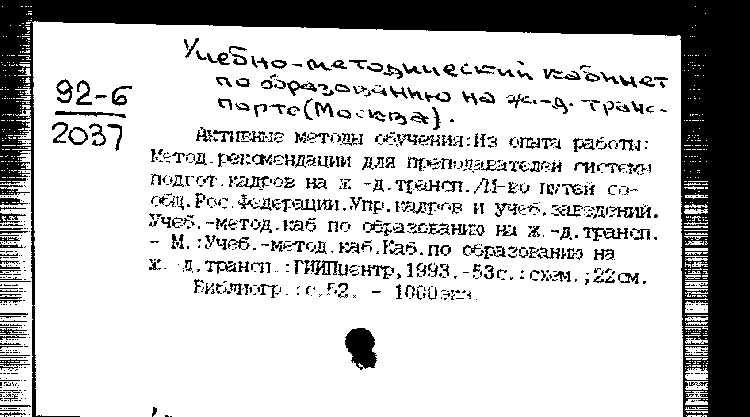 Учебно-методический кабинет
по образованию на ж.-д. транс-
порте (Москва).
92-6
2037
Активные методы обучения:Из опыта работы:
Метод.рекомендации для преподавателей системы
подгот.кадров на ж.-д.трансп./М-во путей со-
общ.Рос.Федерации.Упр.кадров и учеб.заведений.
Учеб.-метод.каб по образованию на ж.-д.трансп.
- М.:Учеб.-метод.каб.Каб.по образованию на
ж.-д.трансп.:ГИИПцентр,1993.-53с.:схем.;22см.
Библиогр.:с.52. - 1000экз.